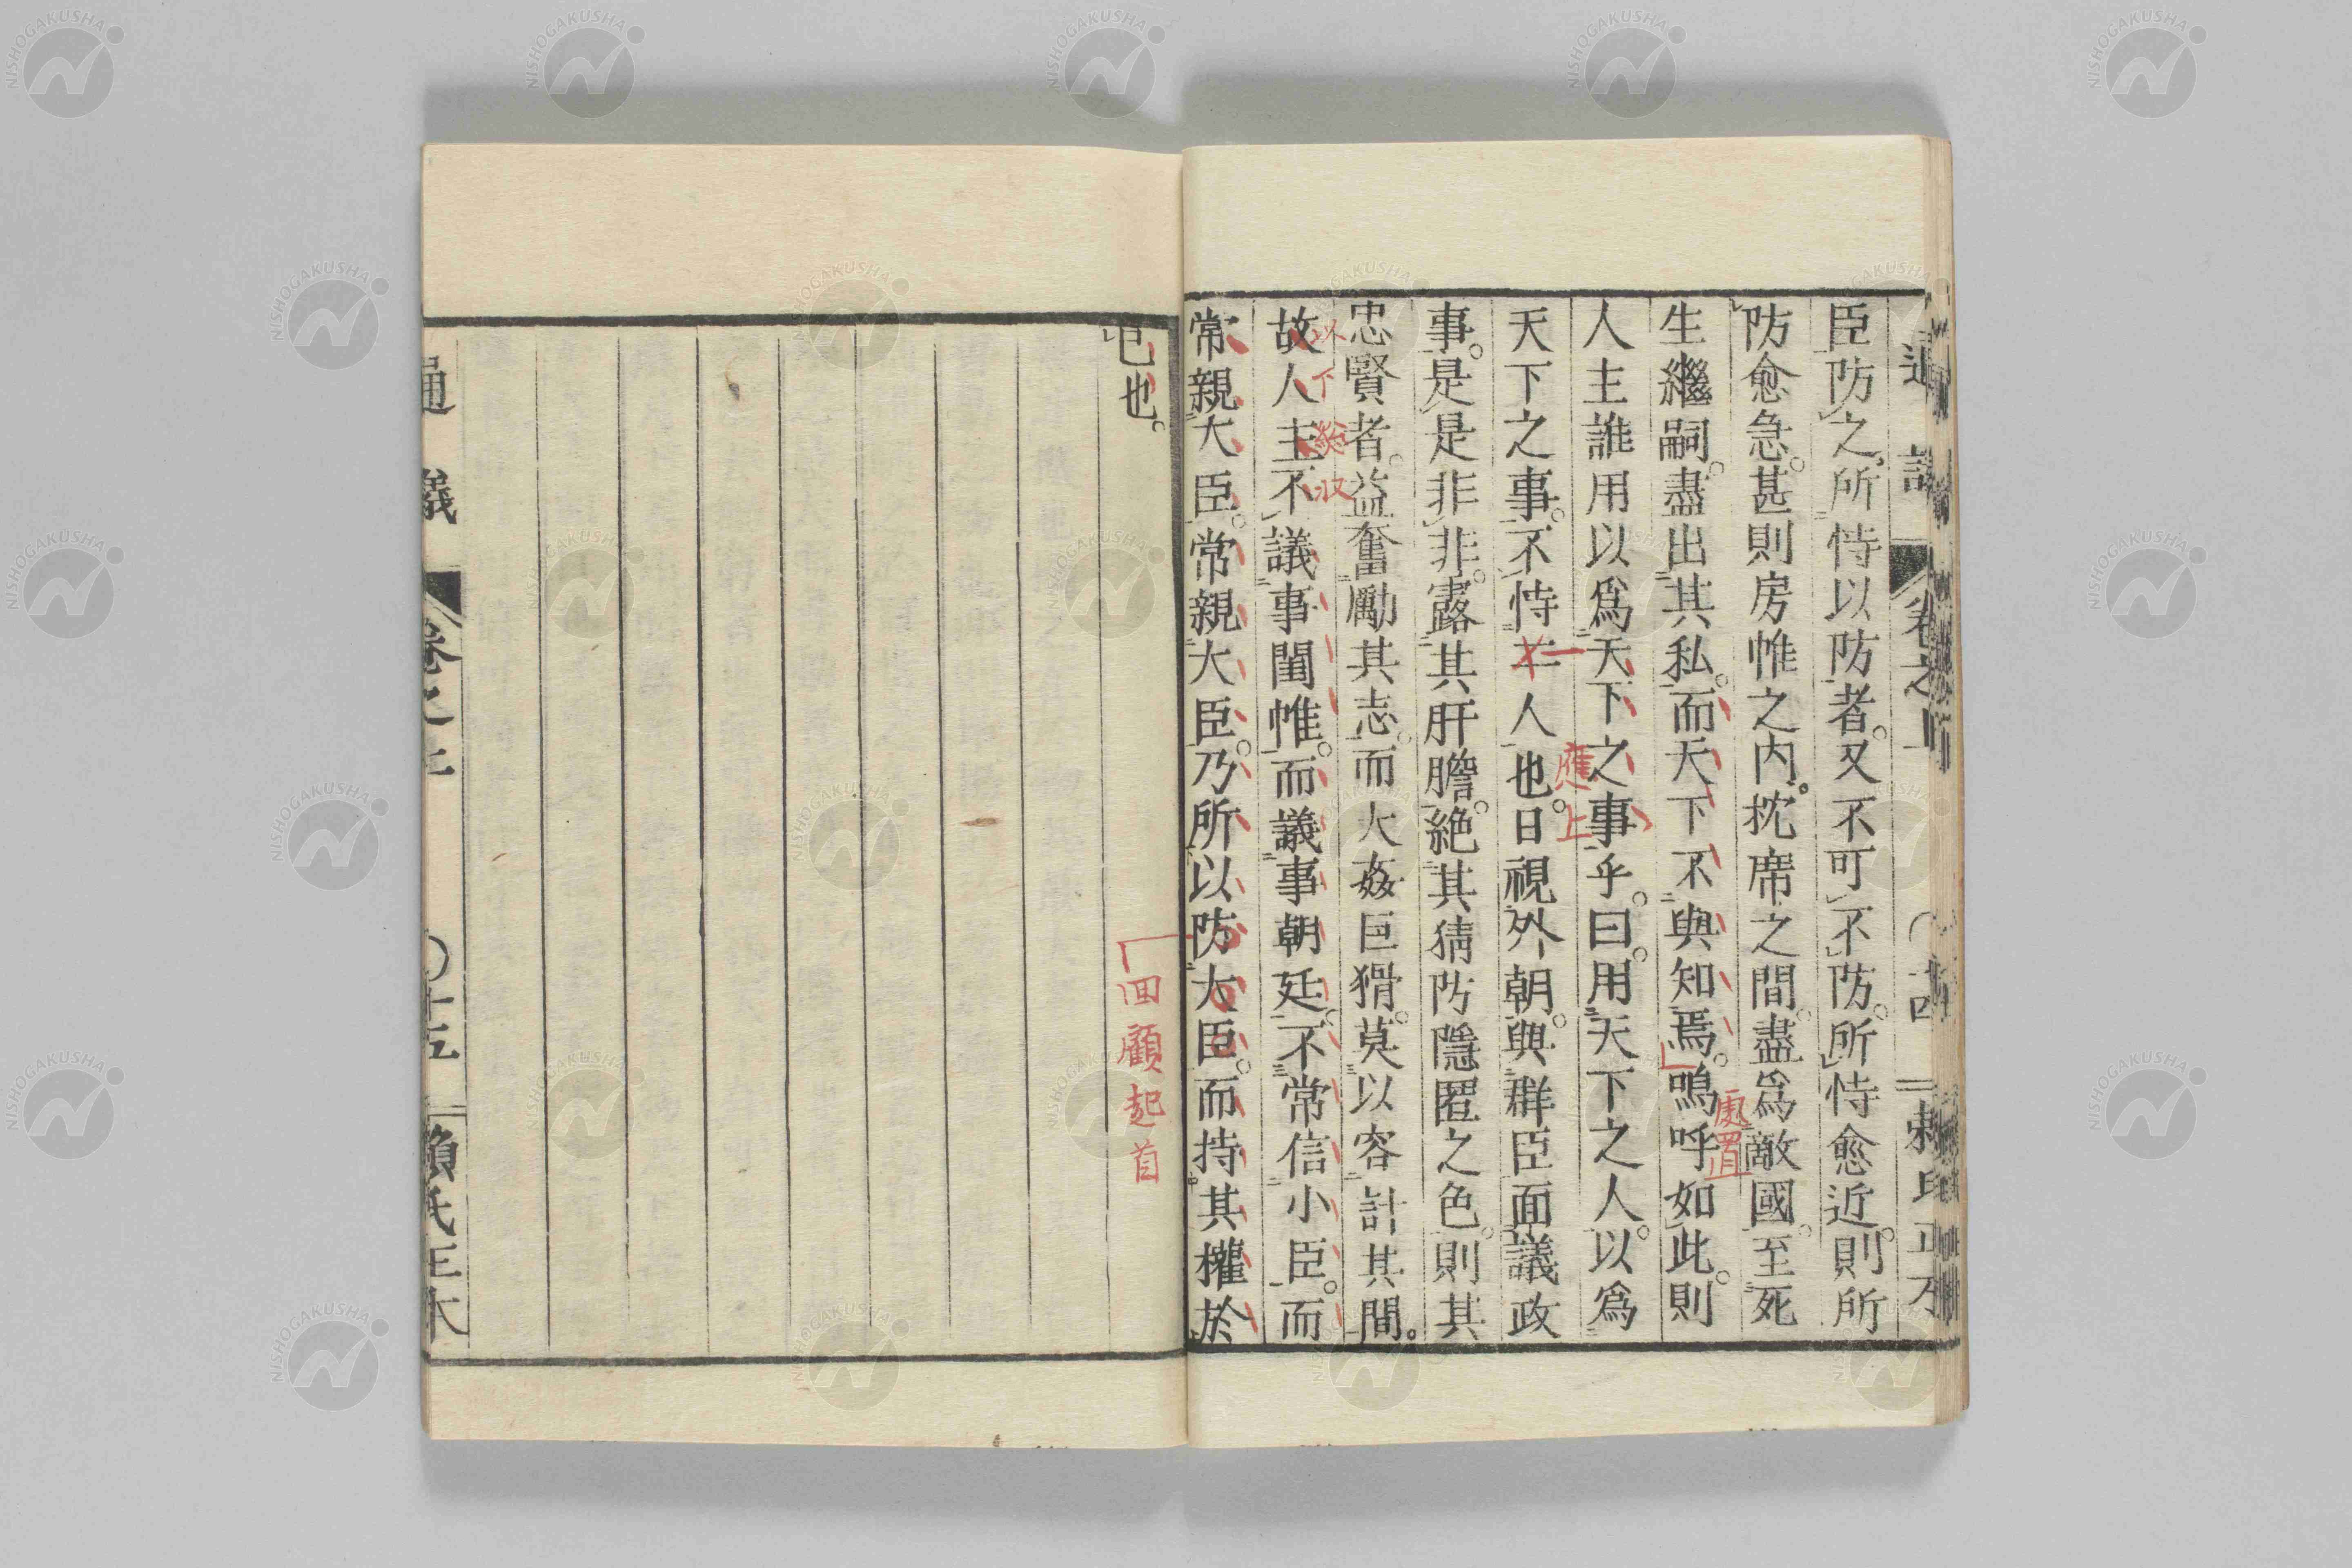 臣防之。所恃以防者。又不可不防。所恃愈近。則所
防愈急。甚則房帷之內。枕席之間。盡爲敵國。至死
處置
生繼嗣。盡出其私。而天下不與知焉。嗚呼如此。則
人主誰用以爲天下之事乎。曰。用天下之人。以爲
應上
天下之事。不恃一人也。日視外朝。與群臣面議政
事。是是非非。露其肝膽。絕其猜防隱匿之色。則其
忠賢者。益奮勵其志。而大姦巨猾。莫以容計其間。
以下變收
故人主不議事閨帷。而議事朝廷。不常信小臣。而
常親大臣。常親大臣。乃所以防大臣。而持其權於
回顧起首
也。
通議
卷之上
〇十五
賴氏正本
NISHOGAKUSHA